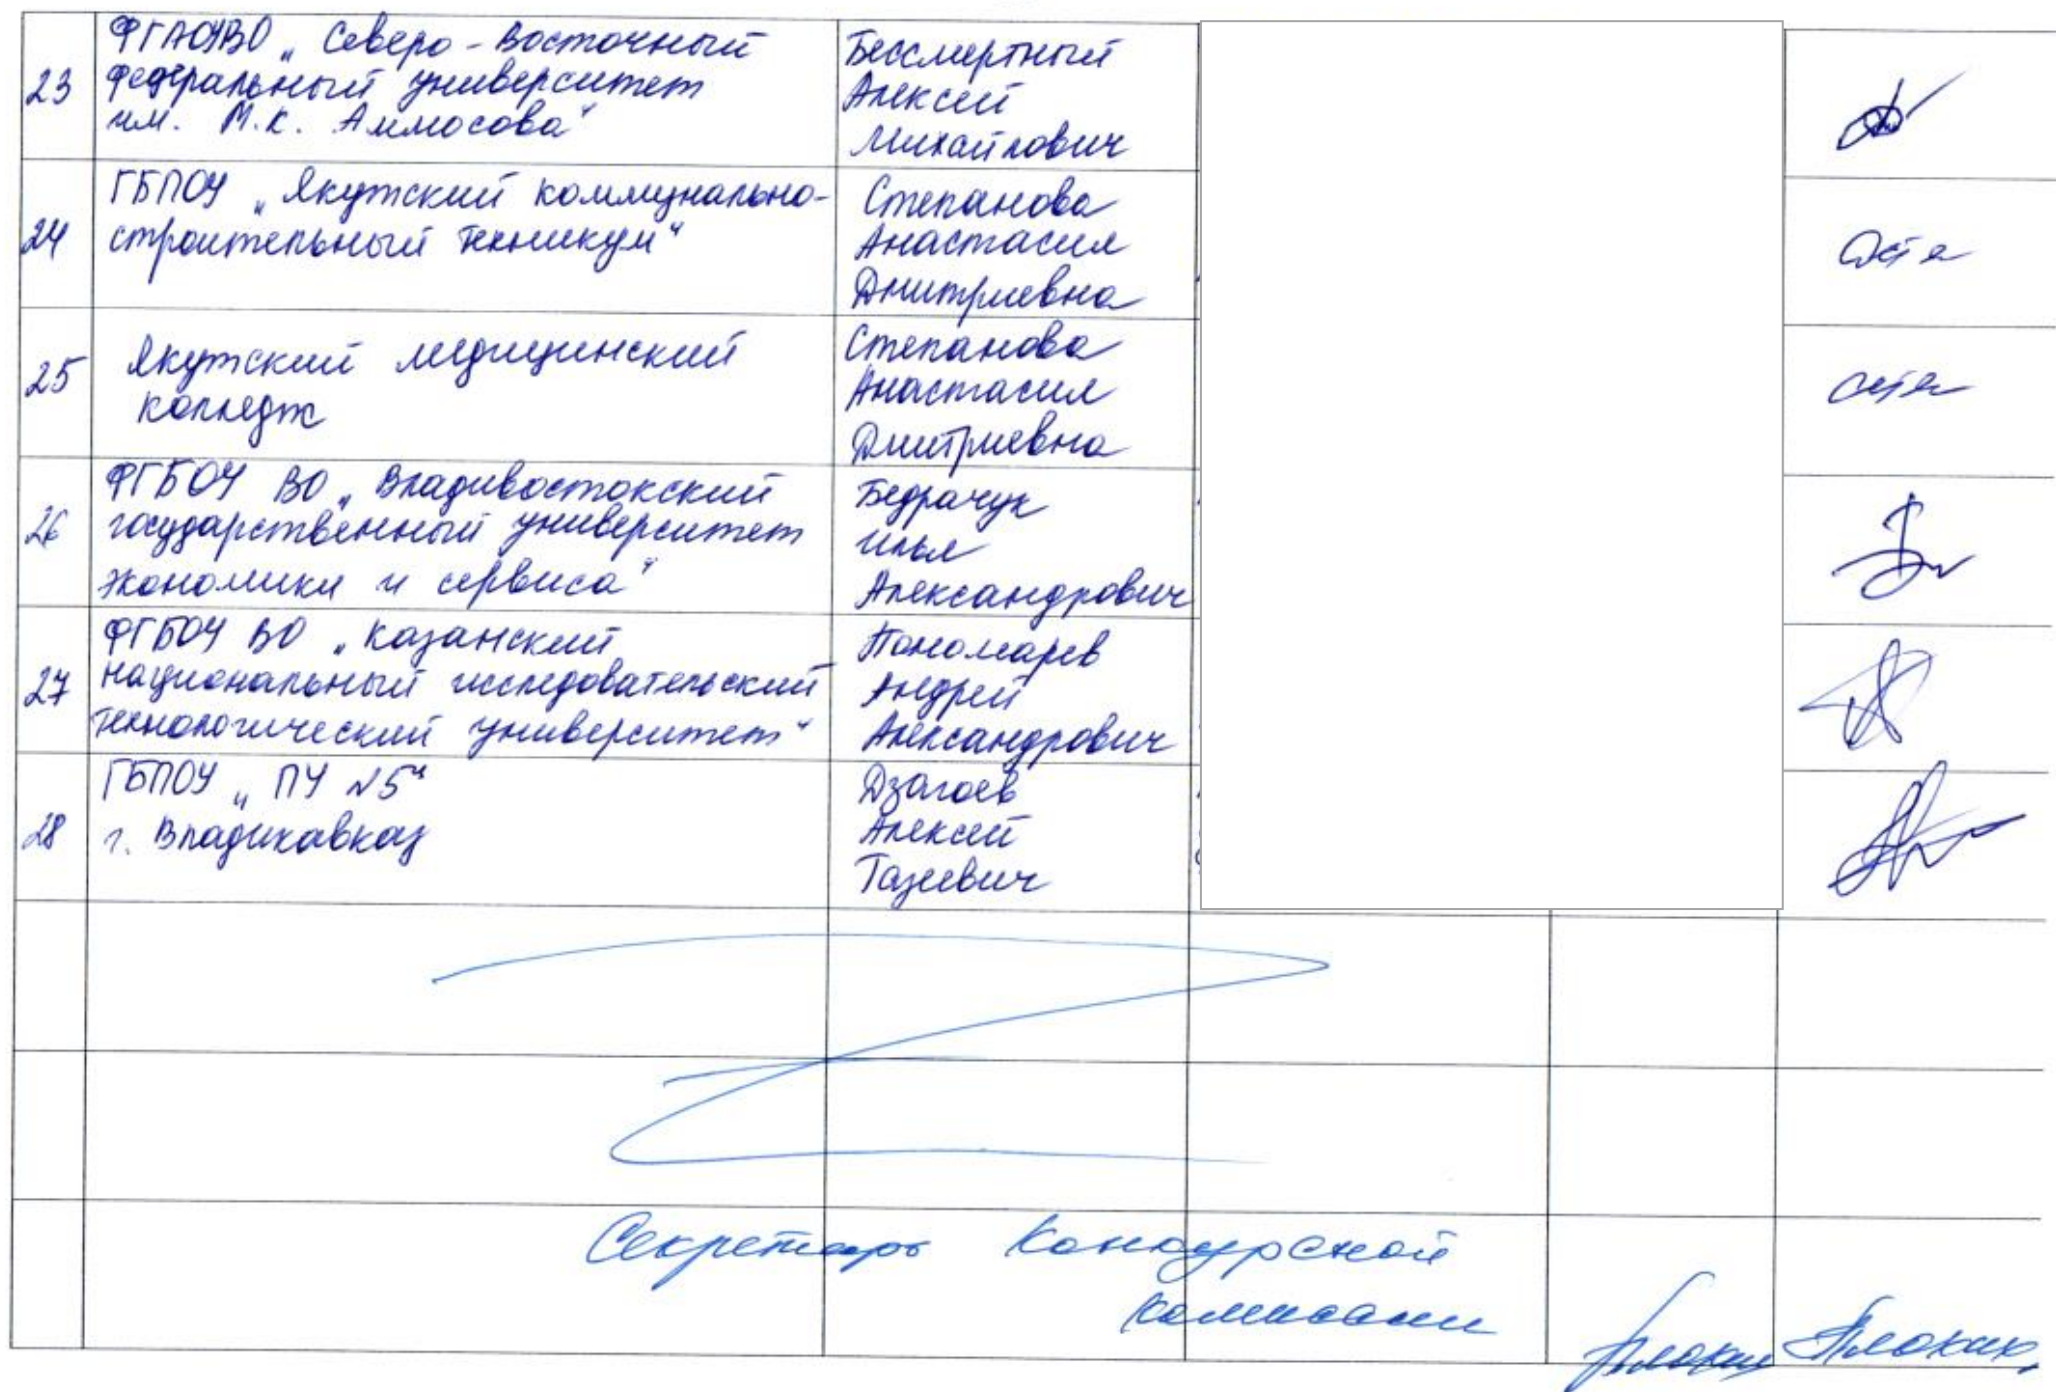 23
ФГАОУВО „Северо-Восточный
федеральный университет
им. М.К. Аммосова“
Бессмертный
Алексей
Михайлович
24
ГБПОУ „Якутский коммунально-
строительный техникум“
Степанова
Анастасия
Дмитриевна
25
Якутский медицинский
колледж
Степанова
Анастасия
Дмитриевна
26
ФГБОУ ВО „Владивостокский
государственный университет
экономики и сервиса“
Бедрачук
Илья
Александрович
27
ФГБОУ ВО „Казанский
национальный исследовательский
технологический университет“
Пономарев
Андрей
Александрович
28
ГБПОУ „ПУ №5“
г. Владикавказ
Дзагоев
Алексей
Тазеевич
Секретарь Конкурсной
комиссии